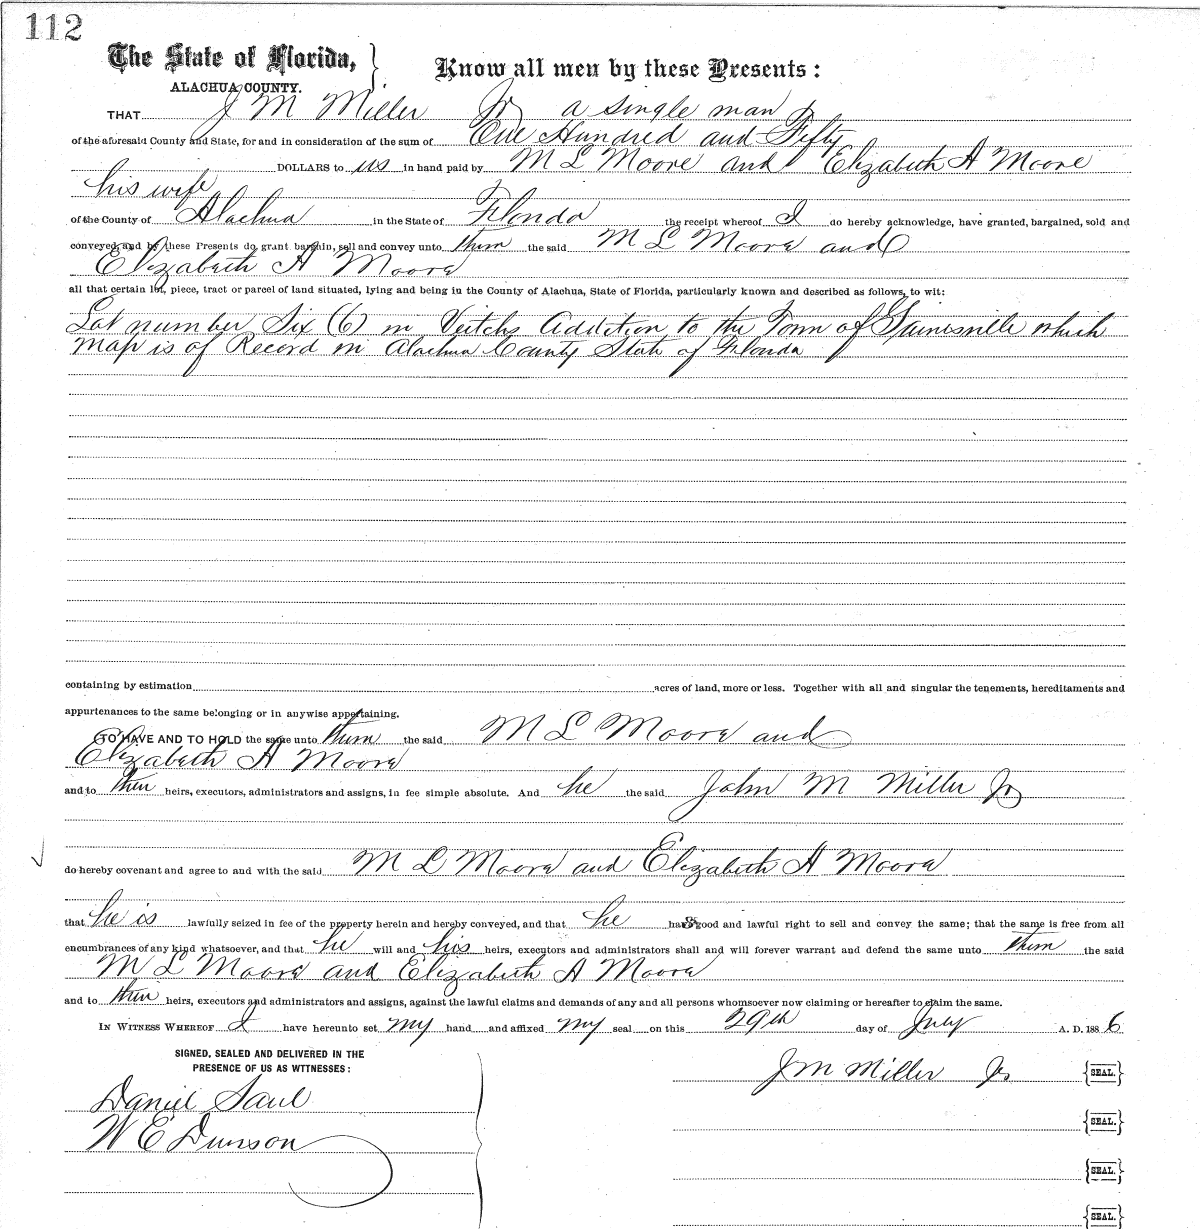 112
The State of Florida,
ALACHUA COUNTY.
Know all men by these Presents:
THAT J M Miller Jr a single man
of the aforesaid County and State, for and in consideration of the sum of One Hundred and Fifty
DOLLARS to us in hand paid by M L Moore and Elizabeth A Moore
his wife
of the County of Alachua in the State of Florida the receipt whereof I do hereby acknowledge, have granted, bargained, sold and
conveyed, and by these Presents do grant bargain, sell and convey unto them the said M L Moore and
Elizabeth A Moore
all that certain lot, piece, tract or parcel of land situated, lying and being in the County of Alachua, State of Florida, particularly known and described as follows, to wit:
Lot number Six (6) in Veitchs Addition to the Town of Gainesville which
map is of Record in Alachua County State of Florida
containing by estimation acres of land, more or less. Together with all and singular the tenements, hereditaments and
appurtenances to the same belonging or in anywise appertaining.
TO HAVE AND TO HOLD the same unto them the said M L Moore and
Elizabeth A Moore
and to their heirs, executors, administrators and assigns, in fee simple absolute. And he the said John M Miller Jr
do hereby covenant and agree to and with the said M L Moore and Elizabeth A Moore
that he is lawfully seized in fee of the property herein and hereby conveyed, and that he has good and lawful right to sell and convey the same; that the same is free from all
encumbrances of any kind whatsoever, and that he will and his heirs, executors and administrators shall and will forever warrant and defend the same unto them the said
M L Moore and Elizabeth A Moore
and to their heirs, executors and administrators and assigns, against the lawful claims and demands of any and all persons whomsoever now claiming or hereafter to claim the same.
IN WITNESS WHEREOF I have hereunto set my hand and affixed my seal on this 29th day of July A. D. 1886
SIGNED, SEALED AND DELIVERED IN THE
PRESENCE OF US AS WITNESSES:
J M Miller Jr SEAL.
Daniel Saul
SEAL.
W E Dunson
SEAL.
SEAL.